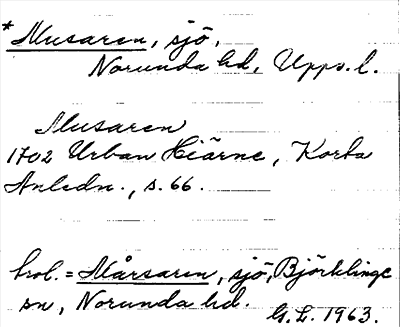 *Musaren, sjö,
Norunda hd, Upps. l.
Musaren
1702 Urban Hiärne, Korta
Anledn., s. 66.
trol. = Mårsaren, sjö, Björklinge
sn, Norunda hd.
G.L. 1963.